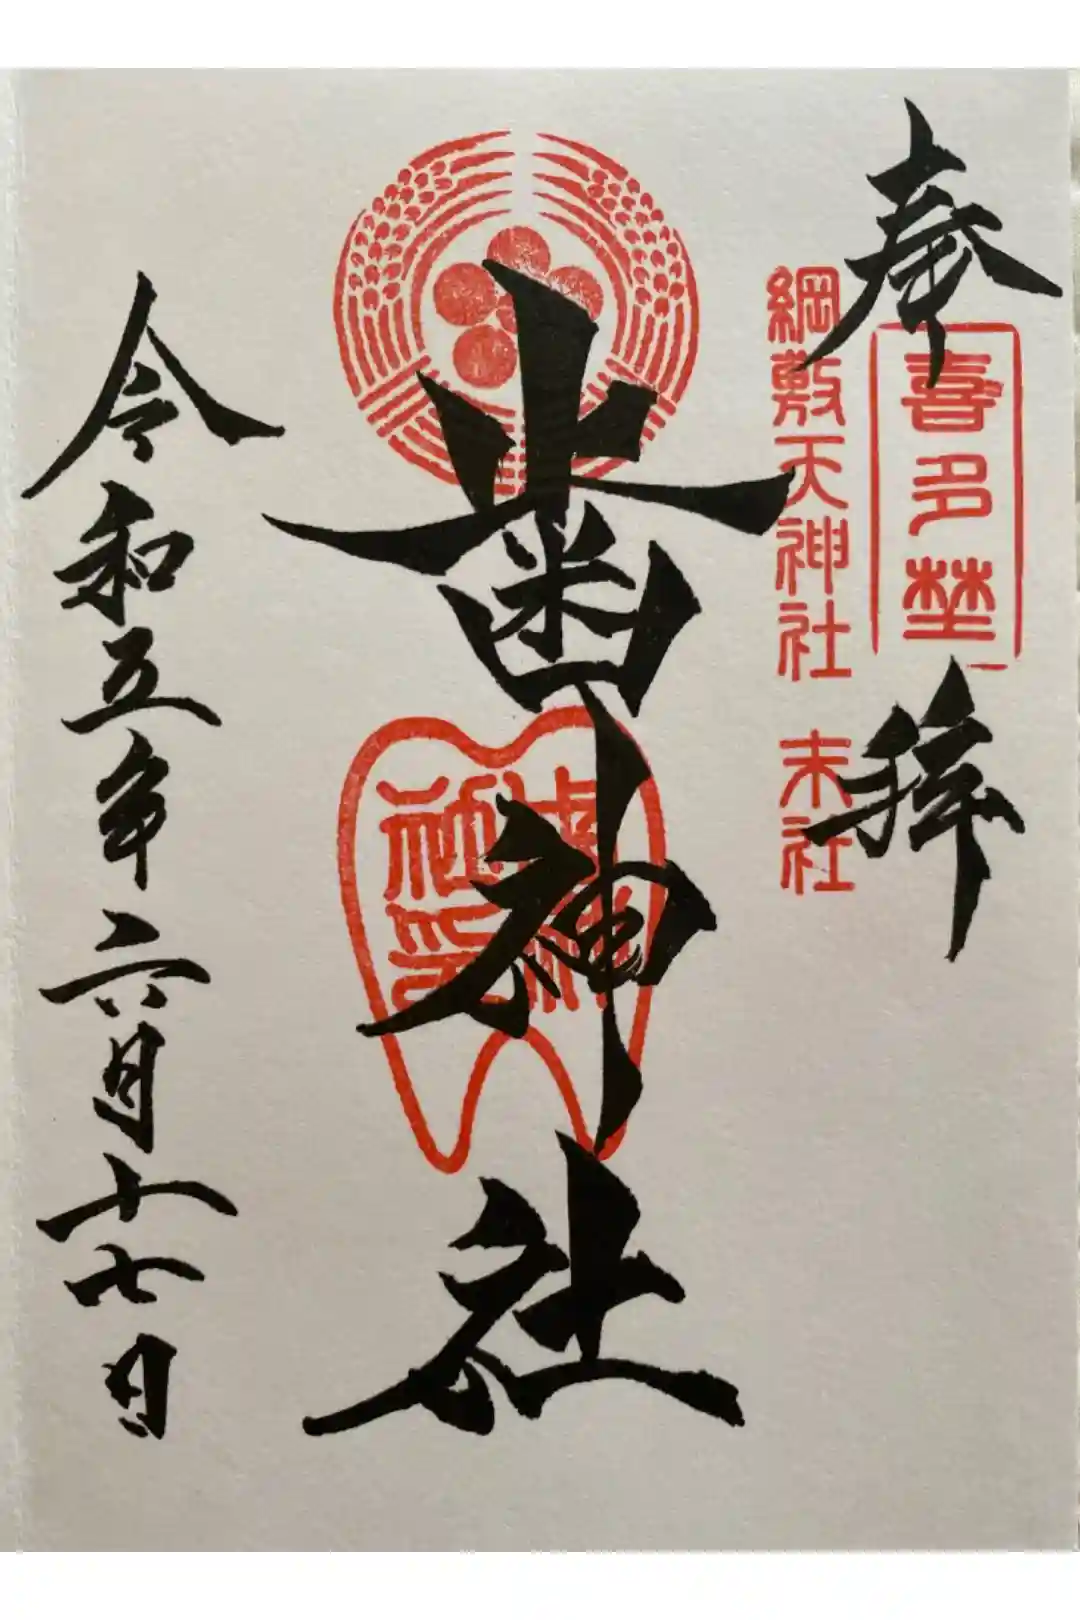 奉拜
喜多埜
綱敷天神社 末社
歯神社
歯神
社印
令和五年六月十七日